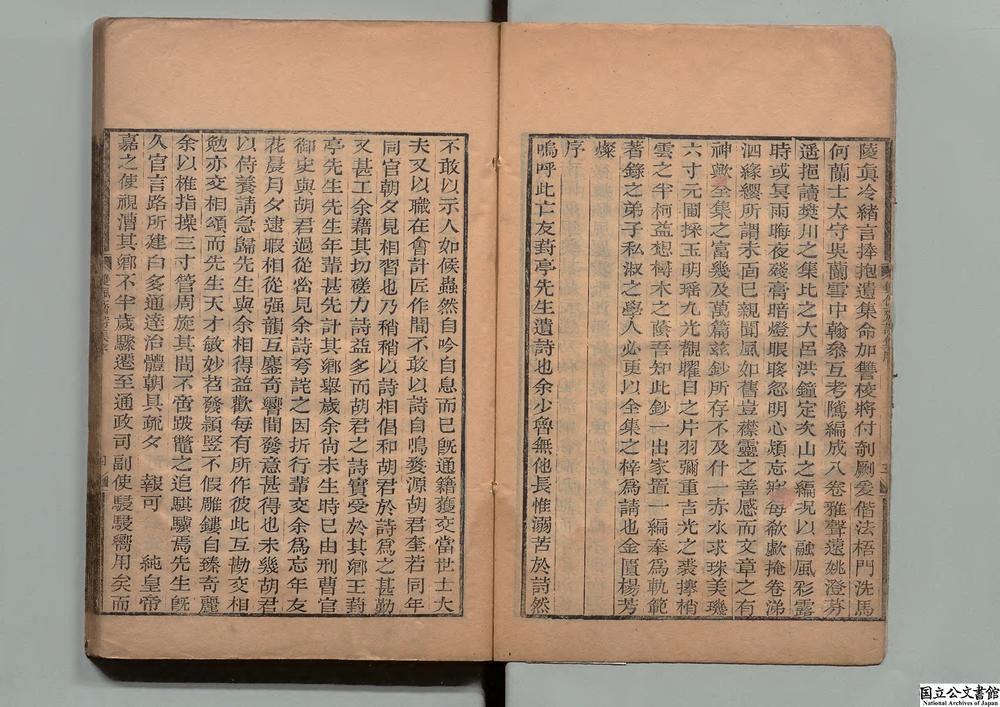 陵真冷緒言捧抱遺集命加讐棱將付剞劂爰偕法梧門洗馬
何蘭士太守吳蘭雪中翰叅互考隲編成八卷雅聲遠姚澄芬
遥挹讀樊川之集比之大呂洪鐘定次山之編况以融風彩露
時或冥雨晦夜殘膏暗燈眼眵忽明心煩忘寐每欷歔掩卷涕
泗緣纓所謂未面已親聞風如舊豈襟靈之善感而文章之有
神歟全集之富幾及萬篇兹鈔所存不及什一赤水求珠美璣
六寸元圃採玉明瑶九光覩曜日之片羽彌重吉光之裘攈梢
雲之半柯益想橚木之蔭吾知此鈔一出家置一編奉爲軌範
著錄之弟子私淑之學人必更以全集之梓爲請也金匱楊芳
燦
序
嗚呼此亡友葑亭先生遺詩也余少魯無他長惟溺苦於詩然
不敢以示人如候蟲然自吟自息而已旣通籍獲交當世士大
夫又以職在會計匠作間不敢以詩自鳴婺源胡君奎若同年
同官朝夕見相習也乃稍稍以詩相倡和胡君於詩爲之甚勤
又甚工余藉其切磋力詩益多而胡君之詩實受於其鄕王葑
亭先生先生年輩甚先計其鄕舉歲余尙未生時已由刑曹官
御史與胡君過從密見余詩夸詫之因折行輩交余爲忘年友
花晨月夕逮暇相從强韻互鏖奇響間發意甚得也未幾胡君
以侍養請急歸先生與余相得益歡每有所作彼此互勘交相
勉亦交相頌而先生天才敏妙苕發穎竪不假雕鏤自臻奇麗
余以椎指操三寸管周旋其間不啻跛鼈之追騏驥焉先生旣
久官言路所建白多通達治體朝具疏夕 報可 純皇帝
嘉之使視漕其鄕不半歲驟遷至通政司副使駸駸嚮用矣而
国立公文書館
National Archives of Japan